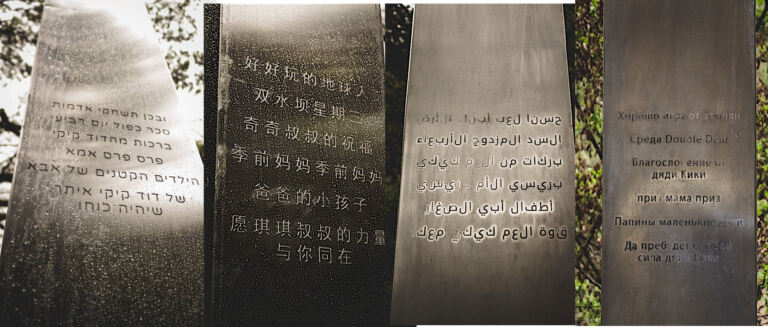 ובכן תשחקי אדמות
סכר כפול יום רביעי
ברכות מהדוד קיקי
פרס פרס אמא
הילדים הקטנים של אבא
של דוד קיקי איתך
שיהיה כוחו
好好玩的地球人
双水坝星期三
奇奇叔叔的祝福
季前妈妈季前妈妈
爸爸的小孩子
愿琪琪叔叔的力量
与你同在
حسنا لعب أبناء الأرض
السد المزدوج الأربعاء
بركات من العم كيكي
بريسي الأم بريسي
أطفال أبي الصغار
قوة العم كيكي معك
Хорошо играет землян
Среда Double Dam
Благословение от
дяди Кики
приз мама приз
Папины маленькие дети
Да пребудет с тобой
сила дяди Кики